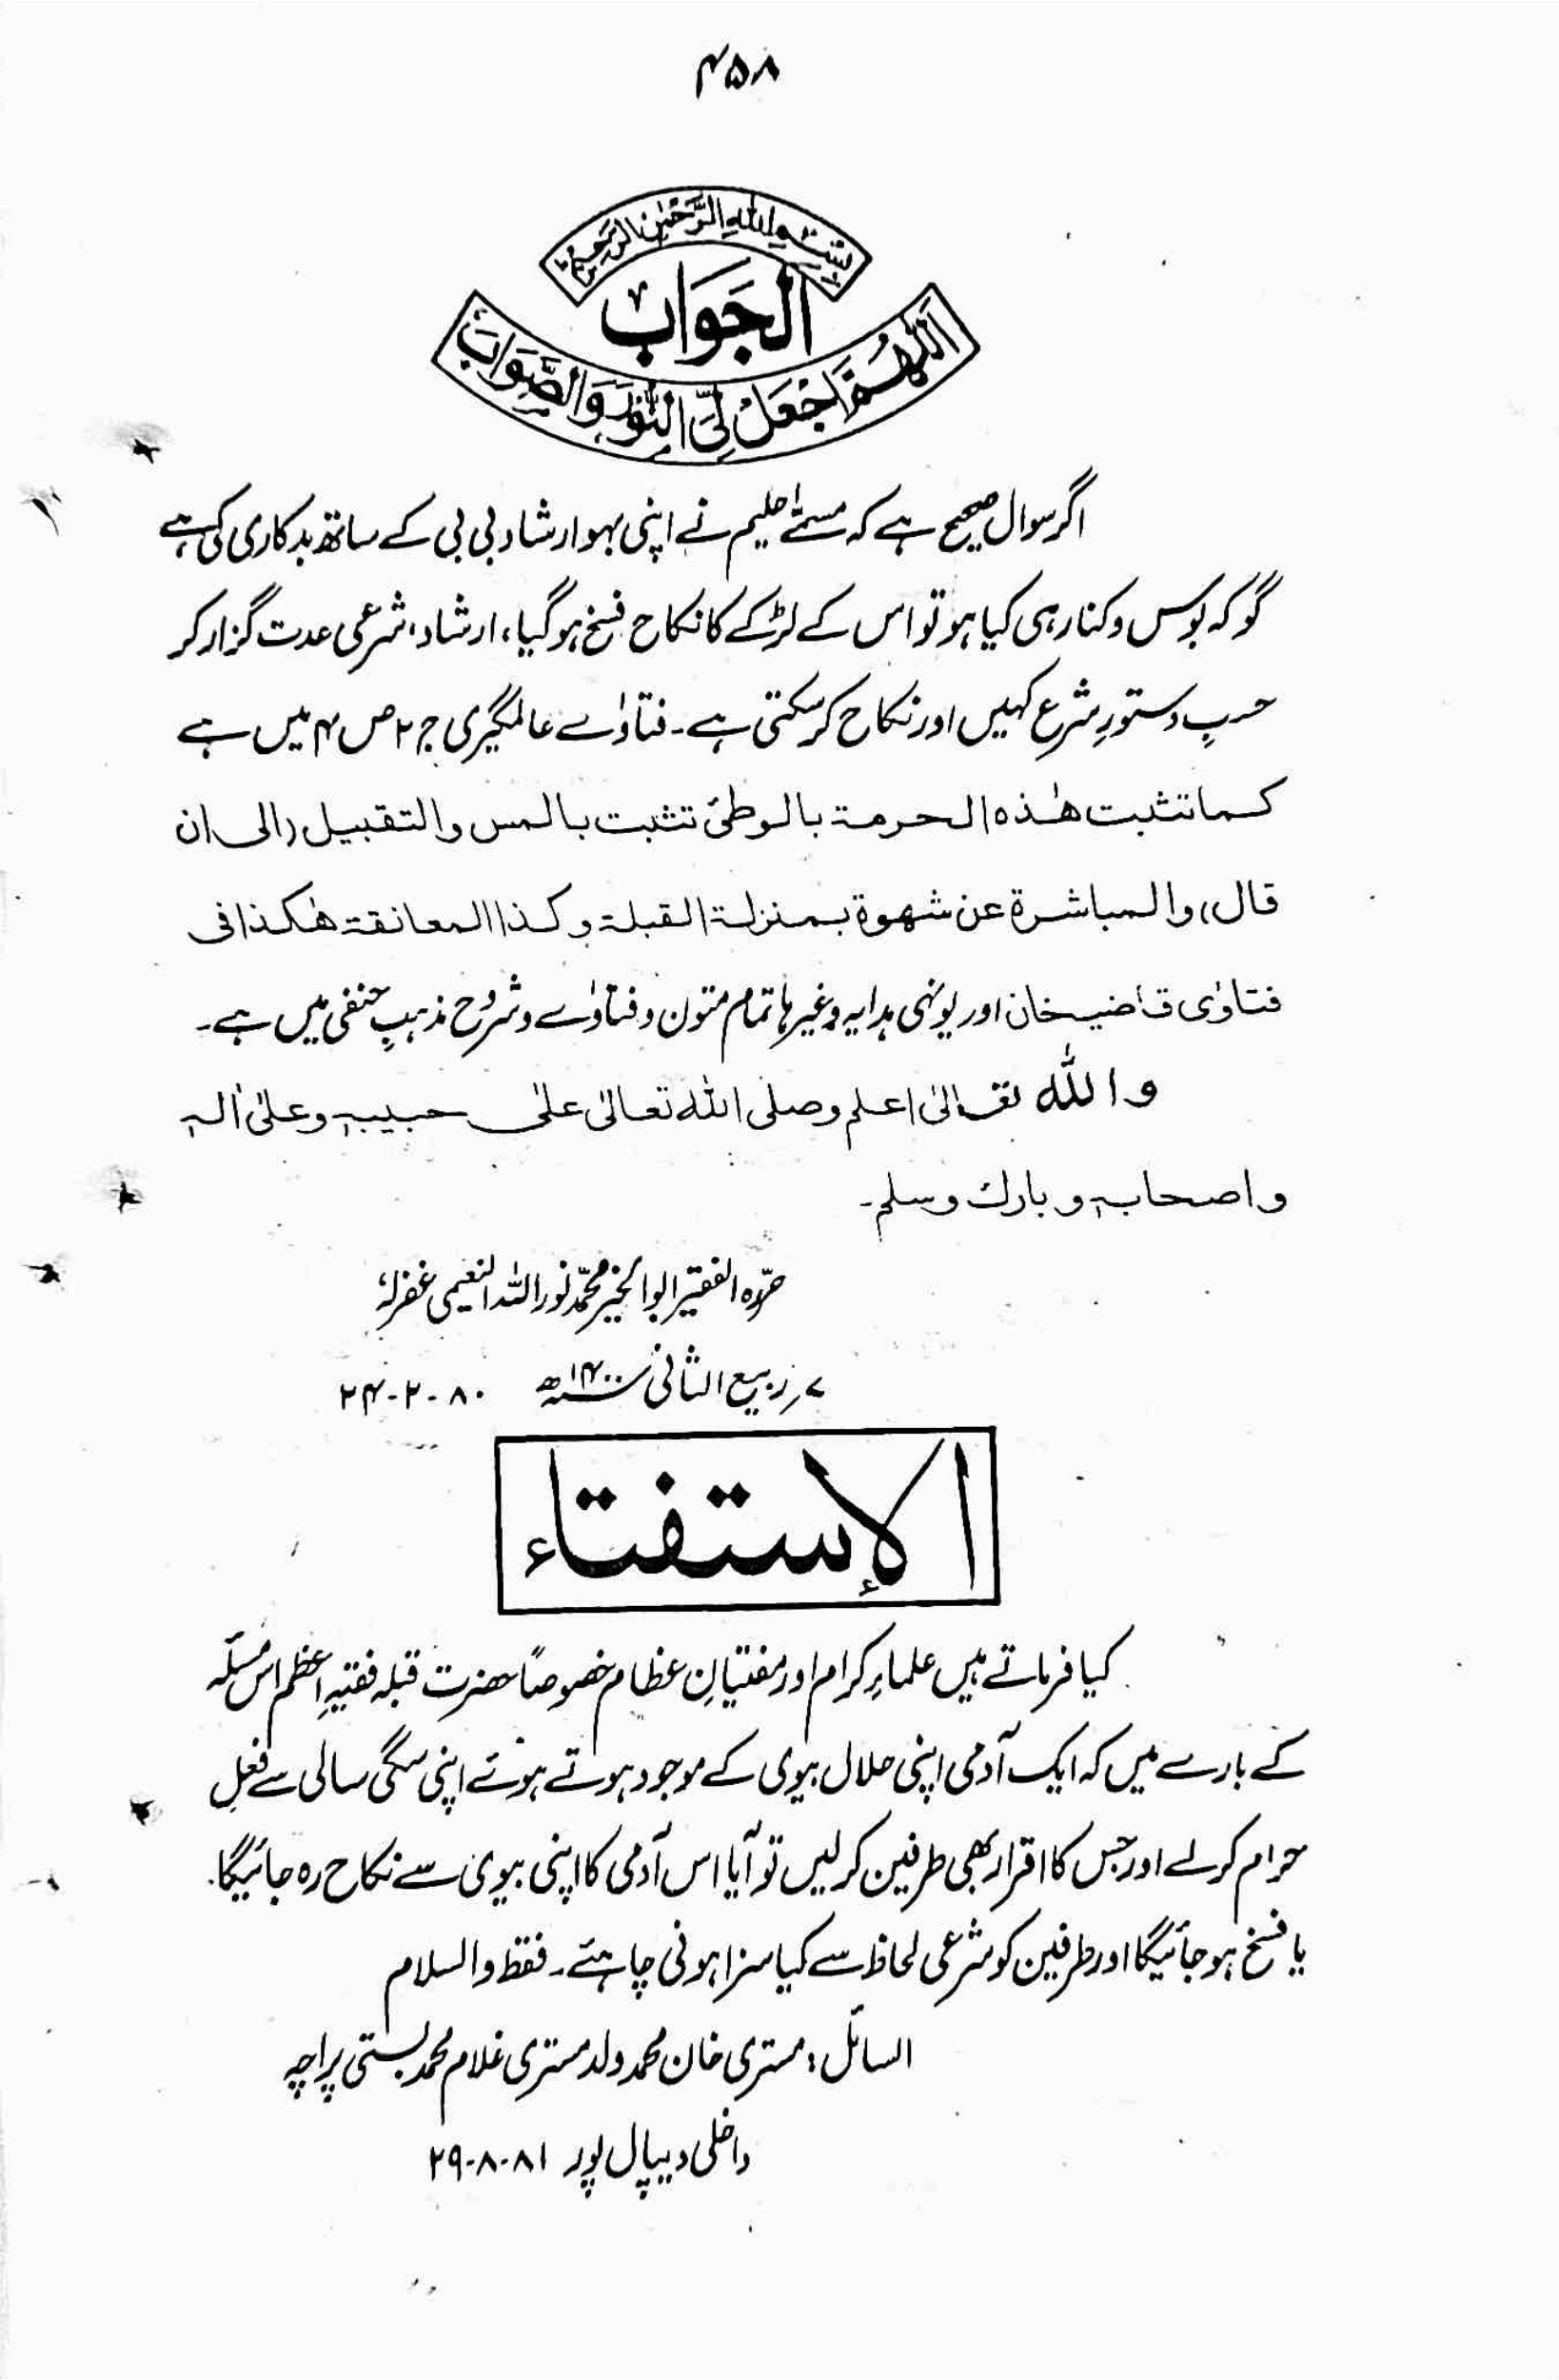 ۴۵۸
بِسْمِ اللّٰهِ الرَّحْمٰنِ الرَّحِيْمِ
الجَوَاب
اَللّٰهُمَّ اجْعَلْ لِّیَ النُّوْرَ وَالصَّوَابَ
اگر سوال صحیح ہے کہ مسمّٰے حلیم نے اپنی بہو ارشاد بی بی کے ساتھ بدکاری کی ہے
گو کہ بوس و کنار ہی کیا ہو تو اس کے لڑکے کا نکاح فسخ ہوگیا، ارشاد، شرعی عدت گزار کر
حسبِ دستورِ شرع کہیں اور نکاح کرسکتی ہے۔ فتاوٰے عالمگیری ج۲ ص۴ میں ہے
كما تثبت هٰذه الحرمة بالوطئ تثبت بالمس والتقبيل (الى ان
قال) والمباشرة عن شهوة بمنزلة القبلة وكذا المعانقة هٰكذا فى
فتاوٰى قاضيخان اور یونہی ہدایہ وغیرہا تمام متون و فتاوٰے و شروح مذہبِ حنفی میں ہے۔
واللّٰه تعالٰى اعلم وصلى اللّٰه تعالٰى علٰى حبيبہٖ وعلٰى اٰلہٖ
واصحابہٖ وبارك وسلم۔
حرّرہ الفقیر ابوالخیر محمّد نور اللہ النعیمی غفرلہٗ
۷؍ ربیع الثانی ۱۴۰۰ھ ۸۰-۲-۲۴
الإستفتاء
کیا فرماتے ہیں علماءِ کرام اور مفتیانِ عظام خصوصاً حضرت قبلہ فقیہِ اعظم اس مسئلہ
کے بارے میں کہ ایک آدمی اپنی حلال بیوی کے موجود ہوتے ہوئے اپنی سگی سالی سے فعلِ
حرام کرلے اور جس کا اقرار بھی طرفین کرلیں تو آیا اس آدمی کا اپنی بیوی سے نکاح رہ جائیگا۔
یا فسخ ہوجائیگا اور طرفین کو شرعی لحاظ سے کیا سزا ہونی چاہئے۔ فقط والسلام
السائل: مستری خان محمد ولد مستری غلام محمد بستی پراچہ
داخلی دیپال پور ۸۱-۸-۲۹